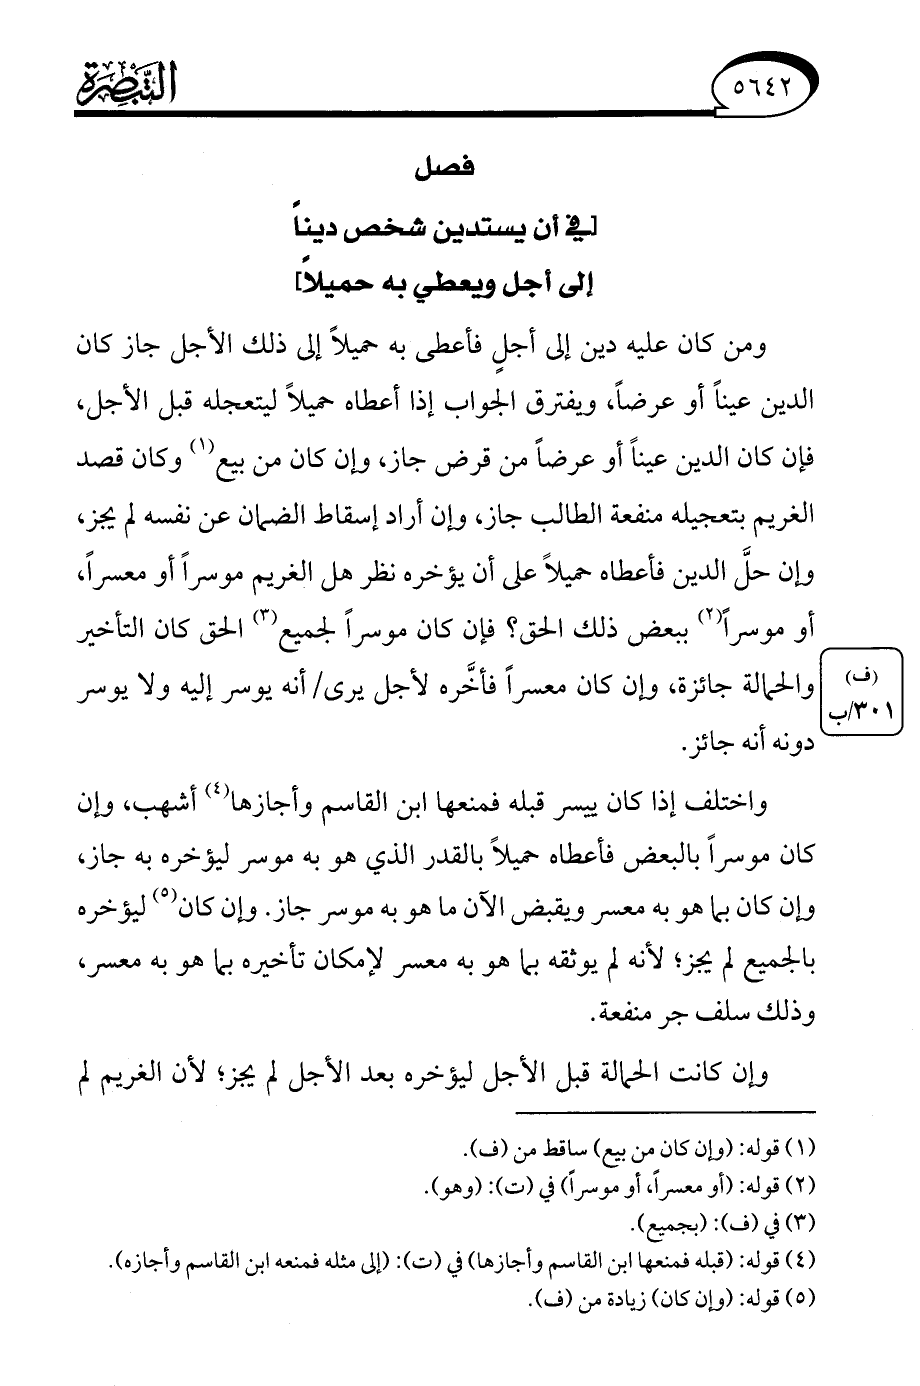 التبصرة
٥٦٤٢
فصل
[في أن يستدين شخص ديناً
إلى أجل ويعطي به حميلاً]
ومن كان عليه دين إلى أجلٍ فأعطى به حميلاً إلى ذلك الأجل جاز كان
الدين عيناً أو عرضاً، ويفترق الجواب إذا أعطاه حميلاً ليتعجله قبل الأجل،
فإن كان الدين عيناً أو عرضاً من قرض جاز، وإن كان من بيع(١) وكان قصد
الغريم بتعجيله منفعة الطالب جاز، وإن أراد إسقاط الضمان عن نفسه لم يجز،
وإن حلَّ الدين فأعطاه حميلاً على أن يؤخره نظر هل الغريم موسراً أو معسراً،
أو موسراً(٢) ببعض ذلك الحق؟ فإن كان موسراً لجميع(٣) الحق كان التأخير
والحمالة جائزة، وإن كان معسراً فأخَّره لأجل يرى/ أنه يوسر إليه ولا يوسر
(ف)
٣٠١/ب
دونه أنه جائز.
واختلف إذا كان ييسر قبله فمنعها ابن القاسم وأجازها(٤) أشهب، وإن
كان موسراً بالبعض فأعطاه حميلاً بالقدر الذي هو به موسر ليؤخره به جاز،
وإن كان بما هو به معسر ويقبض الآن ما هو به موسر جاز. وإن كان(٥) ليؤخره
بالجميع لم يجز؛ لأنه لم يوثقه بما هو به معسر لإمكان تأخيره بما هو به معسر،
وذلك سلف جر منفعة.
وإن كانت الحمالة قبل الأجل ليؤخره بعد الأجل لم يجز؛ لأن الغريم لم
(١) قوله: (وإن كان من بيع) ساقط من (ف).
(٢) قوله: (أو معسراً، أو موسراً) في (ت): (وهو).
(٣) في (ف): (بجميع).
(٤) قوله: (قبله فمنعها ابن القاسم وأجازها) في (ت): (إلى مثله فمنعه ابن القاسم وأجازه).
(٥) قوله: (وإن كان) زيادة من (ف).